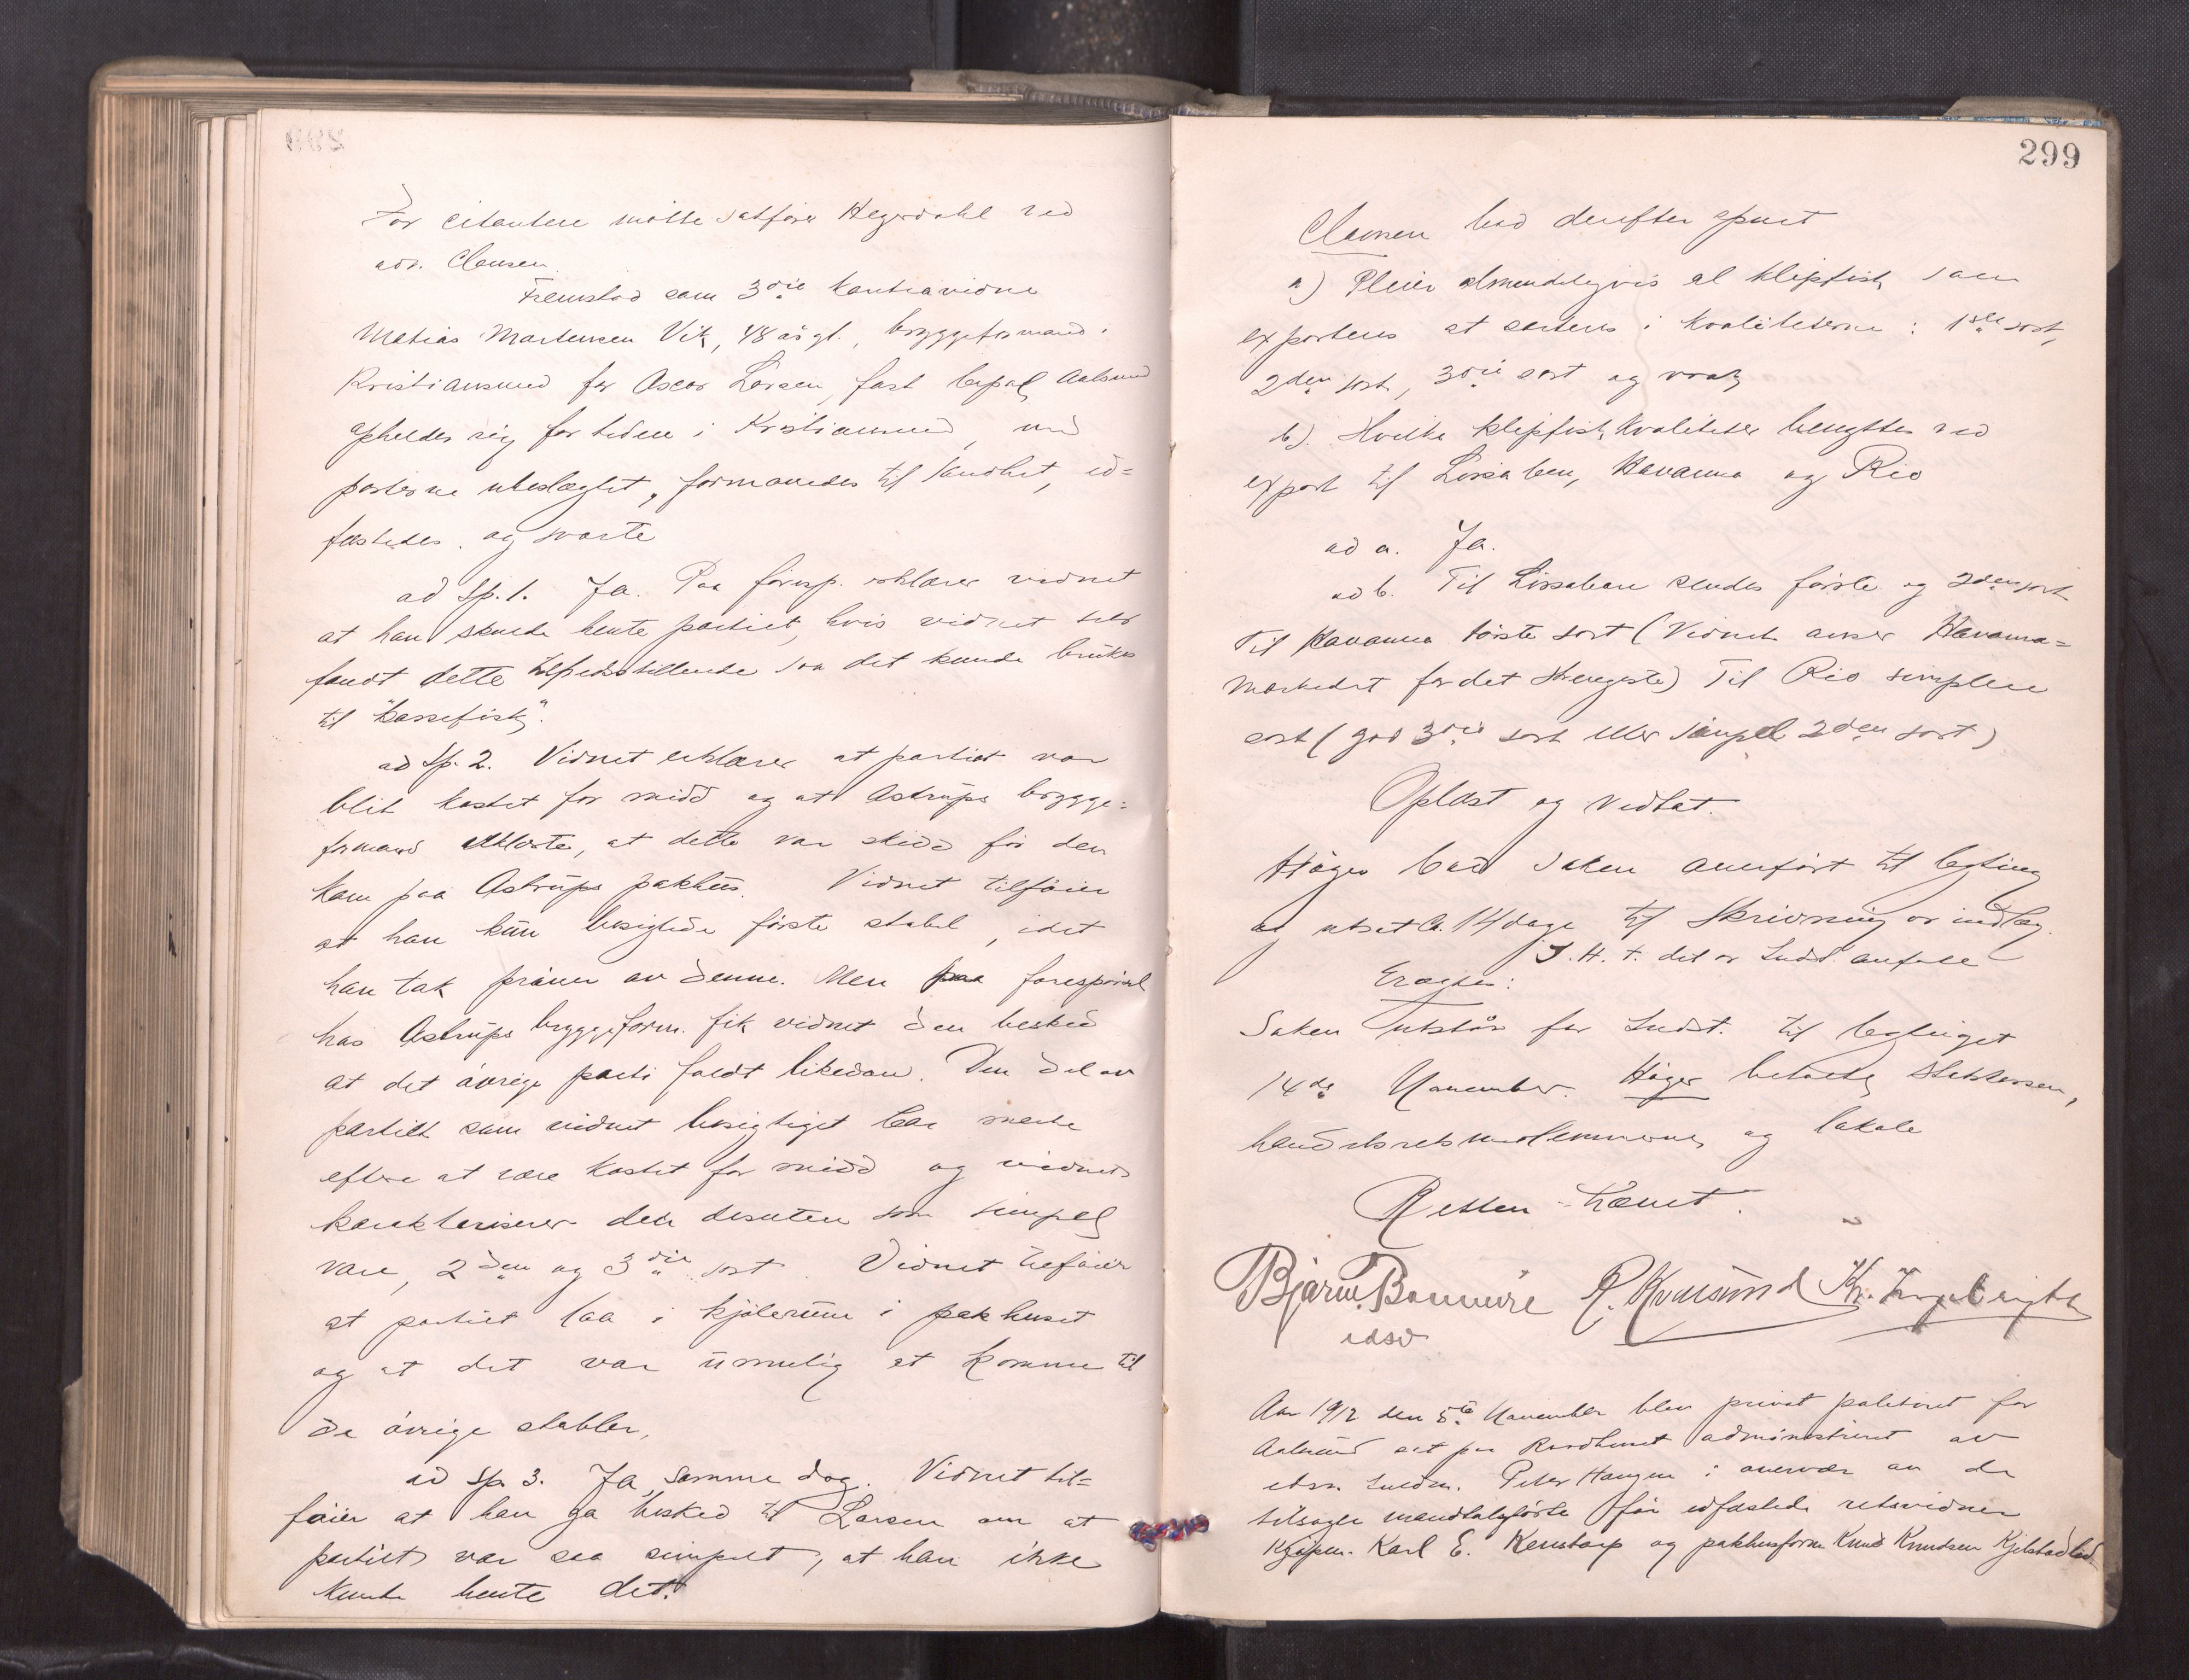 For citanten møtte sakfører Hegerdahl ved
adv. Clausen.
Fremstod som 3die kontravidne
Matias Martensen Vik, 48 år gl., bryggeformand i
Kristiansund for Oscar Larsen, fast bopæl Aalesund
opholder sig for tiden i Kristiansund, med
parterne ubeslægtet, formanedes til sandhet, ed-
fæstedes og svarte
ad Sp. 1. Ja. Paa foresp. erklærer vidnet
at han skulde hente partiet, hvis vidnet selv
fandt dette tilfredsstillende saa det kunde brukes
til "kassefisk".
ad Sp. 2. Vidnet erklærer at partiet var
blit kostet for midd og at Astrups brygge-
formand erklærte, at dette var skedd før den
kom paa Astrups pakhus. Vidnet tilføier
at han kun besigtede første stabel, idet
han tok prøver av denne. Men paa forespørsel
hos Astrups bryggeform. fik vidnet den besked
at det øvrige parti faldt likedan. Den del av
partiet som vidnet besigtiget bar merke
efter at være kostet for midd og vidnet
karakteriserer den desuten som simpel
vare, 2den og 3die sort. Vidnet tilføier
at partiet laa i kjølerum i pakhuset
og at det var umulig at komme til
de øvrige stabler.
ad Sp. 3. Ja, samme dag. Vidnet til-
føier at han ga besked til Larsen om at
partiet var saa simpelt, at han ikke
kunde hente det.
299
Clausen bad derefter spurt
a) Pleier almindeligvis al klipfisk som
exporteres at sorteres i kvaliteterne: 1ste sort,
2den sort, 3die sort og vrak
b). Hvilke klipfiskkvaliteter benyttes ved
export til Lissabon, Havanna og Rio
ad a. Ja.
ad b. Til Lissabon sendes første og 2den sort
Til Havanna første sort (Vidnet anser Havanna-
markedet for det strengeste) Til Rio simplere
sort (god 3die sort eller simpel 2den sort)
Oplæst og vedtat.
Høyer bad saken overført til bogting
og utsat b. 14 dage til skrivning av indlæg.
Eragtes:
Saken utstår for Indst. til bogtinget
14de November. Høyer betalte
handelsretsmedlemmerne og lokale
Retten hævet.
Bjarne R. Kvalsund Kr.
edsv
Aar 1912 den 5te November blev privat politiret for
Aalesund sat paa Raadhuset administreret av
edsv. fuldm. Peter Haugen i overvær av de
tilsagte mandtalsførte før edfæstede retsvidner
Kjøpm. Karl E. og pakhusform. Knud Knudsen Kjelstad